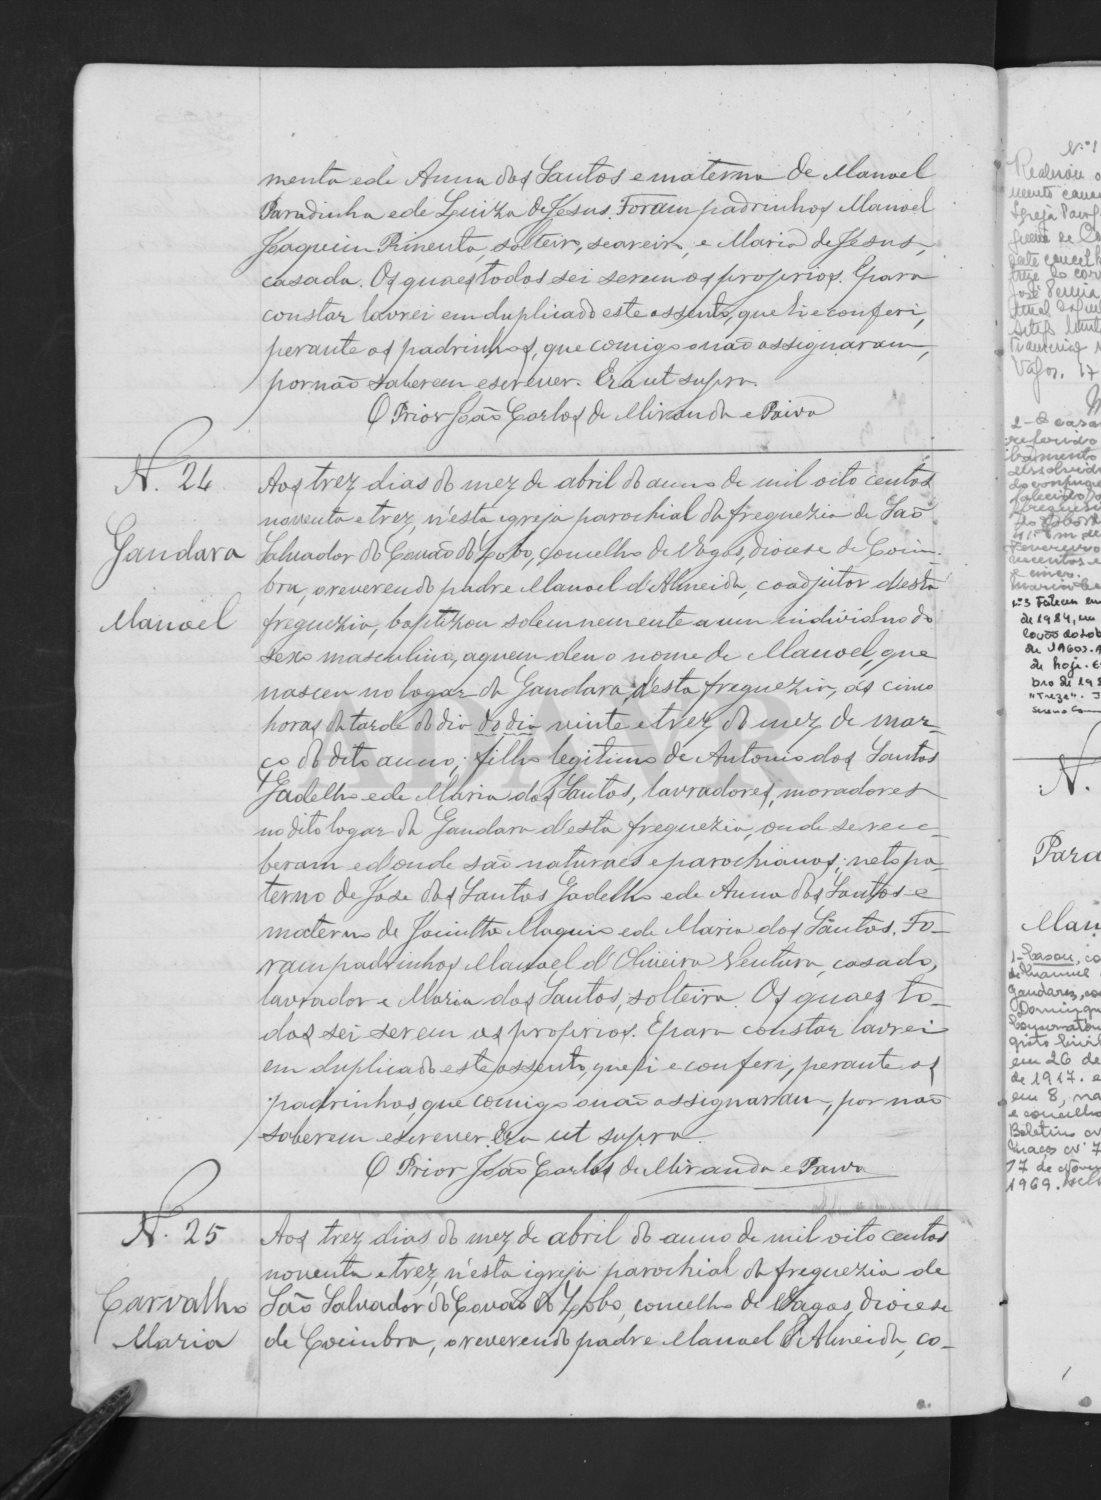 menta e de Anna dos Santos e materna de Manoel
Paradinha e de Luiza de Jesus. Foram padrinhos Manoel
Joaquim Pimenta, solteiro, seareiro, e Maria de Jesus,
casada. Os quaes todos sei serem os proprios. E para
constar lavrei em duplicado este assento, que li e conferi,
perante os padrinhos, que comigo não assignaram,
por não saberem escrever. Era ut supra.
O Prior João Carlos de Miranda e Paiva
N. 24
Gandara
Manoel
Aos trez dias do mez de abril do anno de mil oito centos
noventa e trez, n'esta igreja parochial da freguezia de São
Salvador do Covão do Lobo, concelho de Vagos, diocese de Coim-
bra, o reverendo padre Manoel d'Almeida, coadjutor d'esta
freguezia, baptizou solemnemente a um individuo do
sexo masculino, a quem deu o nome de Manoel, que
nasceu no logar da Gandara, d'esta freguezia, ás cinco
horas da tarde do dia do dia vinte e trez do mez de mar-
ço do dito anno; filho legitimo de Antonio dos Santos
Gadelho e de Maria dos Santos, lavradores, moradores
no dito logar da Gandara d'esta freguezia, onde se rece-
beram e d'onde são naturaes e parochianos; neto pa-
terno de José dos Santos Gadelho e de Anna dos Santos e
materno de Jacintho e de Maria dos Santos. Fo-
ram padrinhos Manoel d'Oliveira Ventura, casado,
lavrador e Maria dos Santos, solteira. Os quaes to-
dos sei serem os proprios. E para constar lavrei
em duplicado este assento, que li e conferi, perante os
padrinhos, que comigo não assignaram, por não
saberem escrever. Era ut supra.
O Prior João Carlos de Miranda e Paiva
N. 25
Carvalho
Maria
Aos trez dias do mez de abril do anno de mil oito centos
noventa e trez, n'esta igreja parochial da freguezia de
São Salvador do Covão do Lobo, concelho de Vagos, diocese
de Coimbra, o reverendo padre Manoel d'Almeida, co-
ADAVR
N.º 1
Vagos, 17
de 1984, em
de Vagos.
de hoje.
"Treze".
N.
Para
Man
1-Casou, co
Gandara, co
em 26 de
de 1917. e
em 8, na
e concelho
Boletim
17 de
1969.